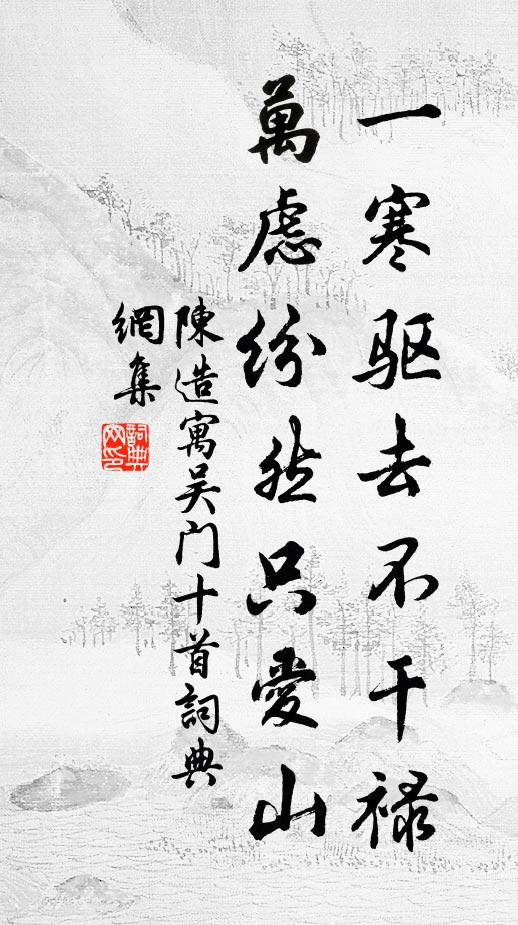 一寒驱去不干祿
萬慮紛然只愛山
陳造寓吴门十首詞典
網集
詞典網印